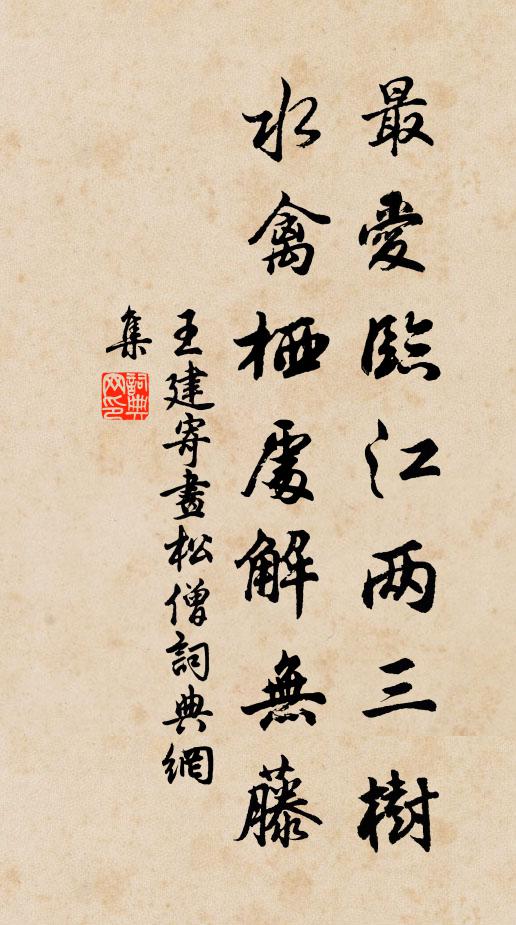 最愛臨江两三樹
水禽栖處解無藤
王建寄畫松僧詞典網
集
詞典网印